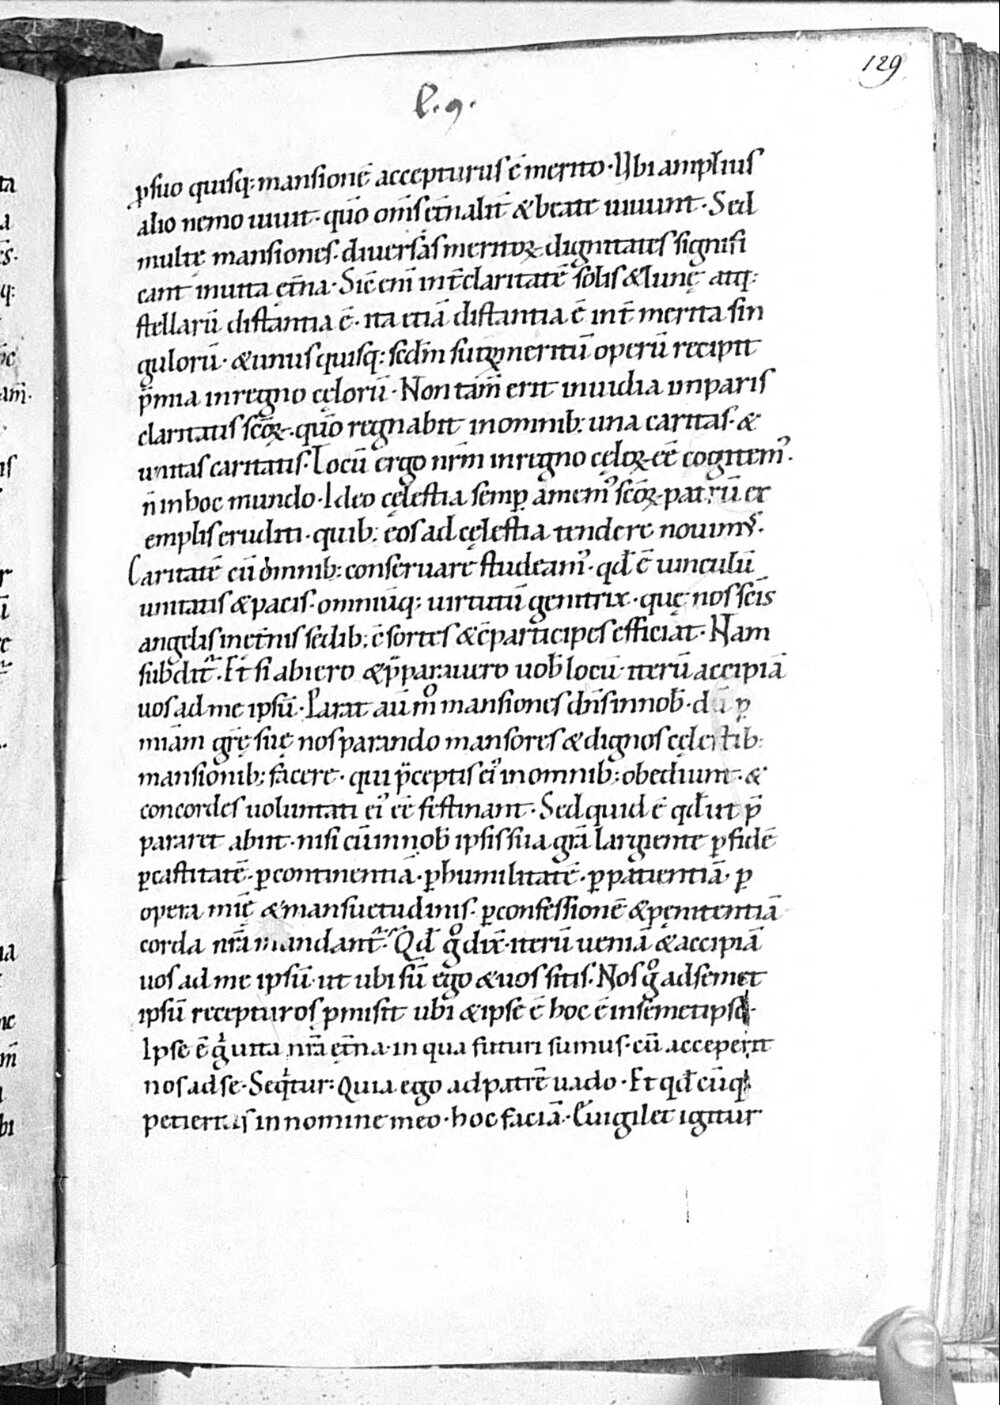 129
l. 9.
ꝑ suo quisq; mansionē accepturus ē merito. Vbi amplius
alio nemo uiuit. quo̅ om̅s et̅nalit̅ & beate uiuunt. Sed
multę mansiones. diuersas meritoꝝ dignitates signifi
cant in uita et̅na. Sic̅ eni̅ int̅ claritatē solis & lunę atq;
stellarū distantia ē. ita etiā distantia ē int̅ merita sin
gulorū. & unus quisq; sed̅m suoꝝ meritū operū recipit
p̅mia in regno cęlorū. Non tam̅ erit inuidia inparis
claritatis sc̅oꝝ. quo̅ regnabit in omnib; una caritas. &
unitas caritatis. Locū ergo nr̅m in regno cęloꝝ ee̅ cogitem᾽.
n̅ in hoc mundo. Ideo cęlestia semp̱ amem᾽ sc̅oꝝ patrū ex
emplis eruditi. quib; eos ad cęlestia tendere nouim᾽.
Caritatē cū omnib; conseruare studeam᾽. qd̅ ē uinculū
unitatis & pacis. omniūq; uirtutū genitrix. quę nos sc̅is
angelis in et̅nis sedib; c̅sortes & c̅participes efficiat. Nam
subdit̅. Et si abiero & p̅parauero uob̅ locū. iterū accipiā
uos ad me ipsū. Parat au̅ mº mansiones dn̅s in nob̅. dū ꝑ
mi̅am gr̅ę suę nos parando mansores & dignos cęlestib;
mansionib; facere. qui p̅ceptis ei᾽ in omnib; obediunt. &
concordes uoluntati ei᾽ ee̅ festinant. Sed quid ē qd̅ ut p̅
pararet abiit. nisi cū in nob̅ ipsis sua gr̅a largiente ꝑ fidē
ꝑ castitatē. ꝑ continentiā. ꝑ humilitatē. ꝑ patientiā. ꝑ
opera mi̅ę & mansuetudinis. ꝑ confessionē & pęnitentiā
corda nr̅a mundant̅. Qd̅ gº dix̅. iterū ueniā & accipiā
uos ad me ipsū. ut ubi sū ego & uos sitis. Nos gº ad semet
ipsū recepturos ꝓmisit ubi & ipse ē hoc ē in semetipso.
Ipse ē gº uita nr̅a et̅na. in qua futuri sumus. cū acceperit
nos ad se. Seqͥtur. Quia ego ad patrē uado. Et qd̅cūq;
petieritis in nomine meo. hoc faciā. Euigilet igitur